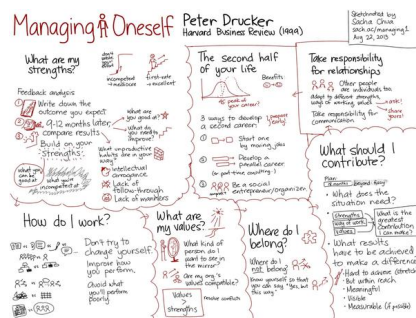 Managing Oneself
Peter Drucker
Harvard Business Review (1999)
Sketchnoted by
Sacha Chua
sach.ac/managing1
Aug 22, 2013
What are my
strengths?
don't
waste
time
incompetent
→mediocre
first-rate
→excellent
Feedback analysis
① Write down the
outcome you expect
② 9-12 months later,
compare results
Build on your
Strengths!
What are you
good at?
What do you
need to
improve?
What unproductive
habits are in your
way?
Intellectual
arrogance
Lack of
follow-through
Lack of manners
The second half
of your life
Benefits:
peak of
your career?
3 ways to develop
a second career:
① Start one
by moving jobs
② Develop a
parallel career
(or part-time consulting!)
③ Be a social
entrepreneur/organizer
Take responsibility
for relationships
Other people
are individuals too.
adapt to different strengths,
ways of working, values
ask!
Take responsibility for
communication.
share
yours!
What should I
contribute?
Plan:
18 months
• What does the
situation need?
strengths
way of work
values
What is the
greatest
contribution
I can make?
• What results
have to be achieved
to make a difference?
Hard to achieve (stretch)
But within reach
Meaningful
Visible
Measurable (if possible)
How do I work?
Don't try to
change yourself.
Improve how
you perform.
Avoid what
you'll perform
poorly.
What are
my values?
What kind of
person do I
want to see in
the mirror?
Are my org.'s
values compatible?
Values
>
strengths
resolve conflicts
Where do I
belong?
Where do I
not belong?
Know yourself so that
you can say "Yes, but
this way."